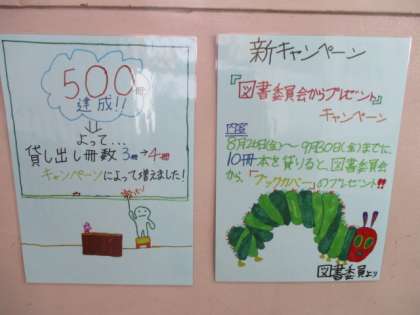 500冊
達成!!
よって...
貸し出し冊数3冊→4冊
キャンペーンによって増えました!
新キャンペーン
『図書委員会からプレゼント』
キャンペーン
内容
8月26日(金)〜9月30日(金)までに、
10冊本を借りると、図書委員会
から、「ブックカバー」のプレゼント!!
図書委員より